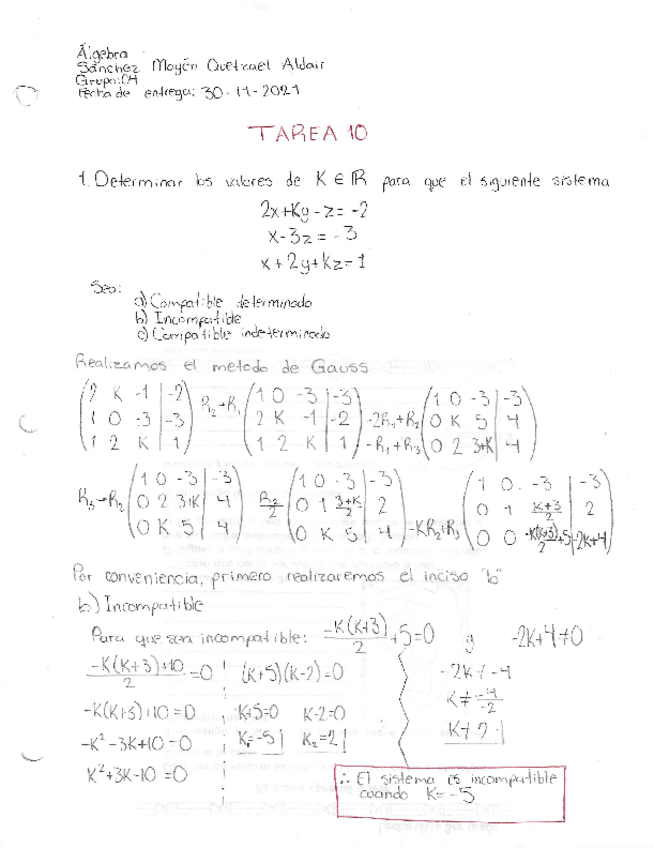 Álgebra
Sánchez Moyén Quetzael Aldair
Grupo:04
Fecha de entrega: 30-11-2021
TAREA 10
1. Determinar los valores de K ∈ ℝ para que el siguiente sistema
2x+Ky-z=-2
x-3z=-3
x+2y+kz=1
Sea:
a) Compatible determinado
b) Incompatible
c) Compatible indeterminado
Realizamos el metodo de Gauss
(2 K -1 | -2) (1 0 -3 | -3) (1 0 -3 | -3)
(1 0 -3 | -3) R₂→R₁ (2 K -1 | -2) -2R₁+R₂ (0 K 5 | 4)
(1 2 K | 1) (1 2 K | 1) -R₁+R₃ (0 2 3+K | 4)
(1 0 -3 | -3) (1 0 -3 | -3) (1 0 -3 | -3)
R₃→R₂ (0 2 3+K | 4) R₂/2 (0 1 3+K/2 | 2) (0 1 K+3/2 | 2)
(0 K 5 | 4) (0 K 5 | 4) -KR₂+R₃ (0 0 -K(K+3)/2+5 | -2K+4)
Por conveniencia, primero realizaremos el inciso "b"
b) Incompatible
Para que sea incompatible: -K(K+3)/2 +5=0 y -2K+4≠0
-K(K+3)+10/2 =0 (K+5)(K-2)=0 -2K≠-4
-K(K+3)+10=0 K+5=0 K-2=0 K≠-4/-2
-K²-3K+10=0 K₁=-5 K₂=2 K≠2
K²+3K-10=0
∴ El sistema es incompatible
cuando K=-5